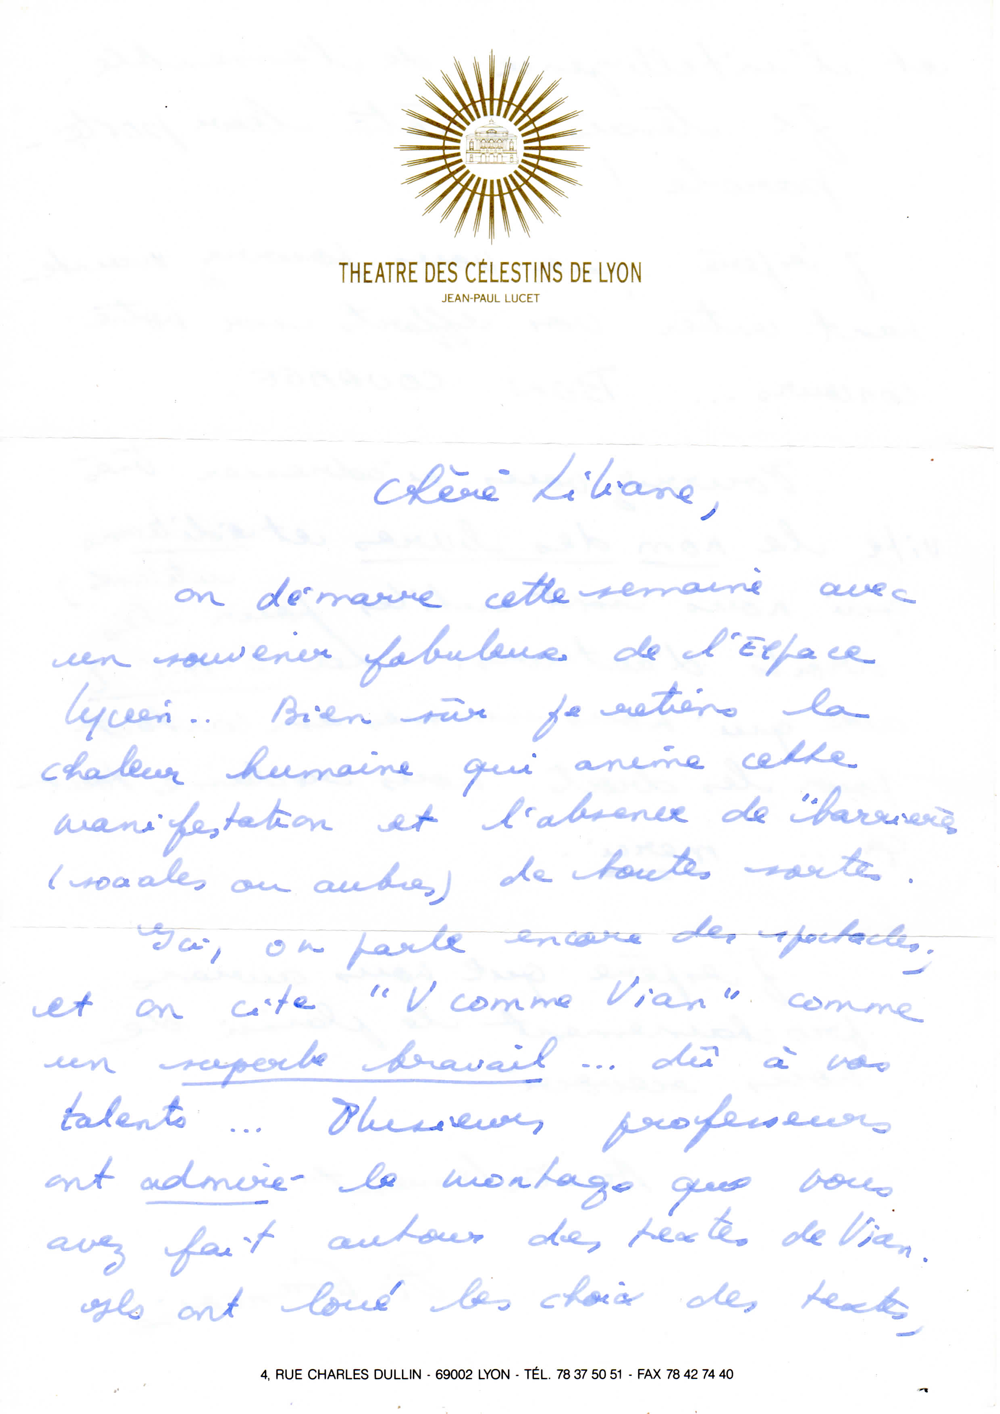 THEATRE DES CÉLESTINS DE LYON
JEAN-PAUL LUCET
Chère Liliane,
on démarre cette semaine avec
un souvenir fabuleux de l'Espace
Lycéen.. Bien sûr je retiens la
chaleur humaine qui anime cette
manifestation et l'absence de "barrières
(sociales ou autres) de toutes sortes.
Ici, on parle encore des spectacles,
et on cite "V comme Vian" comme
un superbe travail ... dû à vos
talents ... Plusieurs professeurs
ont admiré le montage que vous
avez fait autour des textes de Vian.
Ils ont loué les choix des textes,
4, RUE CHARLES DULLIN - 69002 LYON - TÉL. 78 37 50 51 - FAX 78 42 74 40